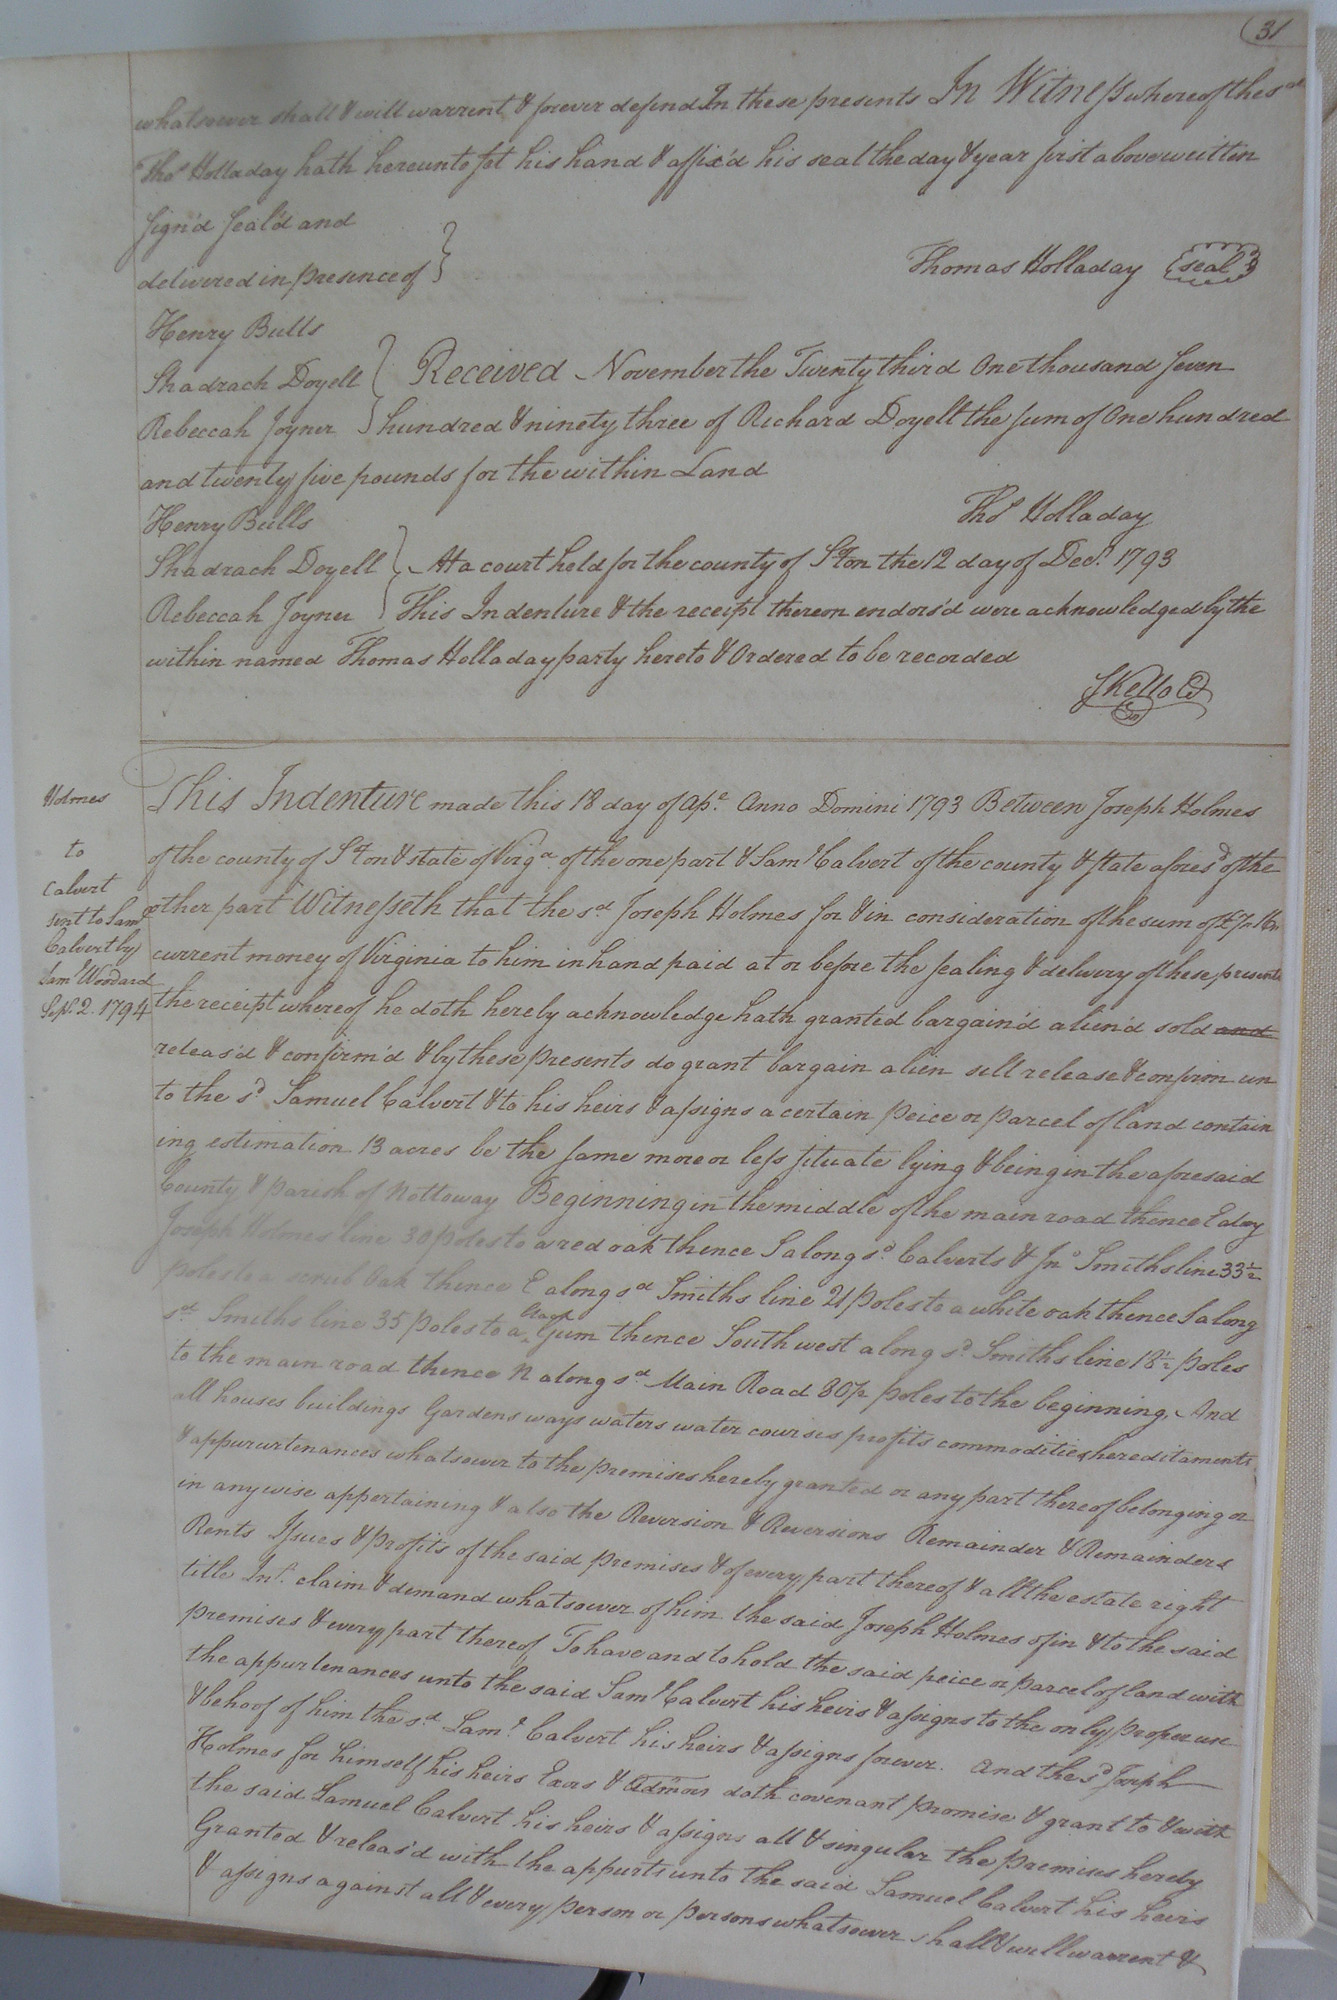 31
whatsoever shall & will warrent & forever defend In these presents In Witness whereof the sd
Thos Holladay hath hereunto set his hand & affix'd his seal the day & year first above written
Sign'd Seal'd and
delivered in presence of
Thomas Holladay seal
Henry Bulls
Shadrach Doyell
Received November the Twenty third One thousand Seven
Rebeccah Joyner
hundred & ninety three of Richard Doyell the sum of One hundred
and twenty five pounds for the within Land
Henry Bulls
Thos Holladay
Shadrach Doyell
At a court held for the county of S°ton the 12 day of Decr 1793
Rebeccah Joyner
This Indenture & the receipt thereon endors'd were acknowledged by the
within named Thomas Holladay party hereto & Ordered to be recorded
S Kello
Holmes
to
Calvert
sent to Saml
Calvert by
Saml Woodard
Sept 2. 1794
This Indenture made this 18 day of Apl Anno Domini 1793 Between Joseph Holmes
of the county of S°ton & state of Virga of the one part & Saml Calvert of the county & State afores'd of the
other part Witnesseth that the sd Joseph Holmes for & in consideration of the sum of
current money of Virginia to him in hand paid at or before the sealing & delivery of these presents
the receipt whereof he doth hereby acknowledge hath granted bargain'd alien'd sold and
releas'd & confirm'd & by these presents do grant bargain alien sell release & confirm un
to the sd Samuel Calvert & to his heirs & assigns a certain peice or parcel of land contain
ing estimation 13 acres be the same more or less situate lying & being in the aforesaid
County & parish of Nottoway Beginning in the middle of the main road thence E along
Joseph Holmes line 30 poles to a red oak thence S along sd Calverts & Jno Smiths line 33½
poles to a scrub Oak thence E along sd Smiths line 21 poles to a white oak thence S along
sd Smiths line 35 poles to a Black Gum thence South west along sd Smiths line 18½ poles
to the main road thence N along sd Main Road 80½ poles to the beginning, And
all houses buildings Gardens ways waters water courses profits commodities hereditaments
& appururtenances whatsoever to the premises hereby granted or any part thereof belonging or
in any wise appertaining & also the Reversion & Reversions Remainder & Remainders
Rents Issues & Profits of the said premises & of every part thereof & all the estate right
title Int. claim & demand whatsoever of him the said Joseph Holmes of in & to the said
premises & every part thereof To have and to hold the said peice or parcel of land with
the appurtenances unto the said Saml Calvert his heirs & assigns to the only proper use
& behoof of him the sd Saml Calvert his heirs & assigns forever. And the sd Joseph
Holmes for himself his heirs Exors & Admors doth covenant promise & grant to & with
the said Samuel Calvert his heirs & assigns all & singular the premises hereby
Granted & releas'd with the appurts unto the said Samuel Calvert his heirs
& assigns against all & every person or persons whatsoever shall & will warrent &